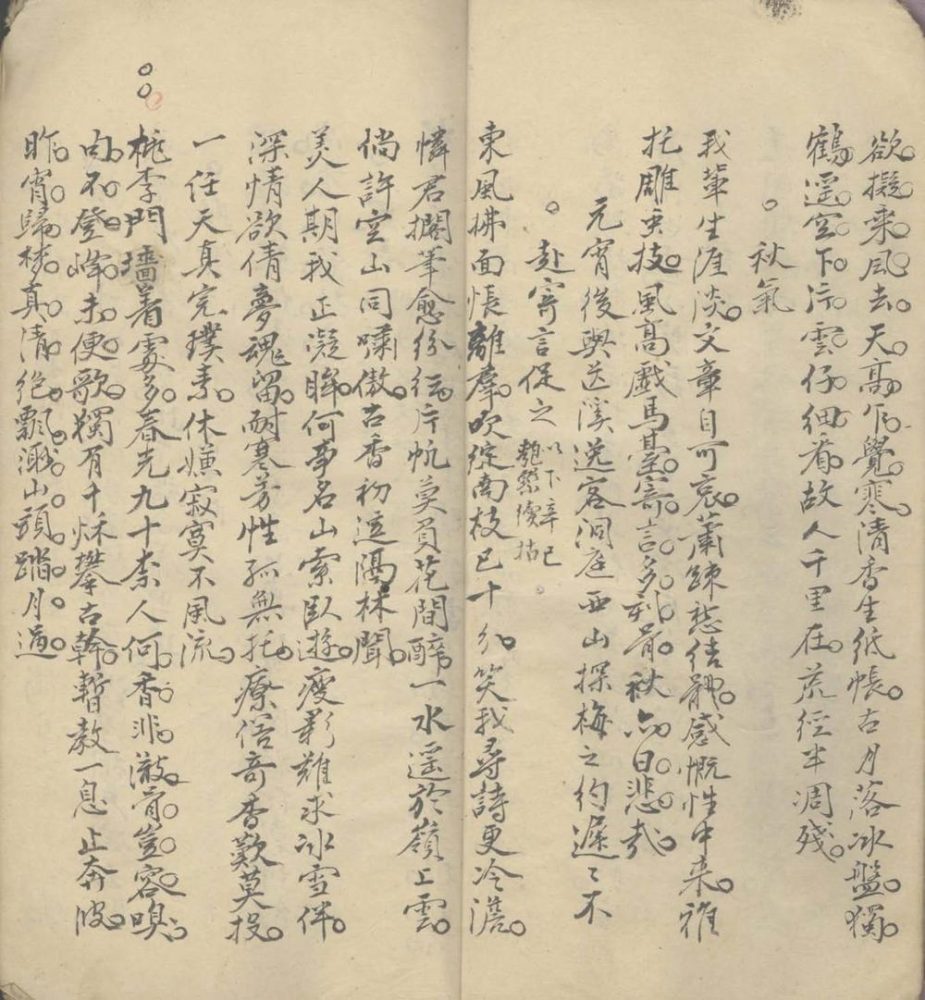 欲擬乘風去。天高乍覺寒。清香生紙帳。古月落冰盤。獨
鶴遥空下。浮雲仔細看。故人千里在。荒徑半凋殘。
秋氣
我輩生涯淡。文章自可哀。蕭疎愁結。感慨性中来。雅
托雕虫技。風高戲馬臺。寄言多利骨。秋亦日悲哉。
元宵後與送溪逸客洞庭西山探梅之約遲遲不
赴寄言促之
以下辛巳
東風拂面悵離羣。吹綻南枝已十分。笑我尋詩更冷澹。
憐君擱筆愈紛紜。片帆莫負花間醉。一水遥於嶺上雲。
倘許空山同嘯傲。古香初逗隔林聞。
美人期我正凝眸。何事名山索臥遊。瘦影難求冰雪伴。
深情欲倩夢魂留。耐寒芳性孤無托。療俗奇香歎莫投。
一任天真完璞素。休嫌寂寞不風流。
桃李門墻着處多。春光九十柰人何。香非澈骨豈容嗅。
向不登峰未便歌。獨有千秋攀古幹。暫教一息止奔波。
昨宵歸夢真清絶。飄渺山頭踏月過。